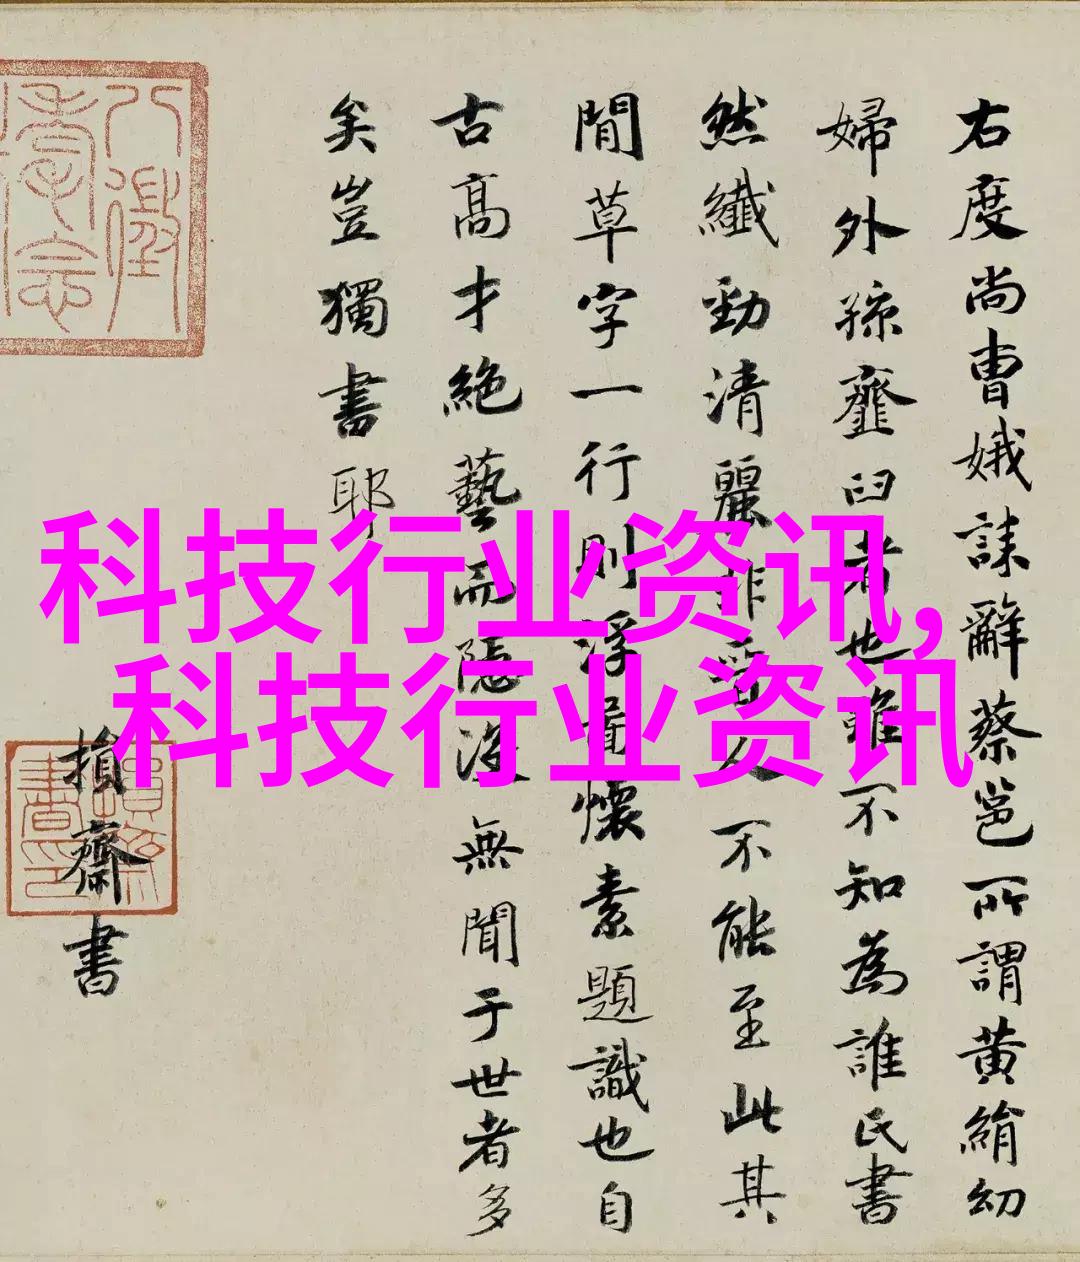 右度尚曹娥誄辭蔡邕所謂黄絹幼
婦外孫韲臼者也雖不知為誰氏書
然纖勁清麗非晉人不能至此其
間草字一行則浮屠懷素題識也自
古高才絶藝而隱沒無聞于世者多
矣豈獨書耶
損齋書
科技行业资讯,
科技行业资讯